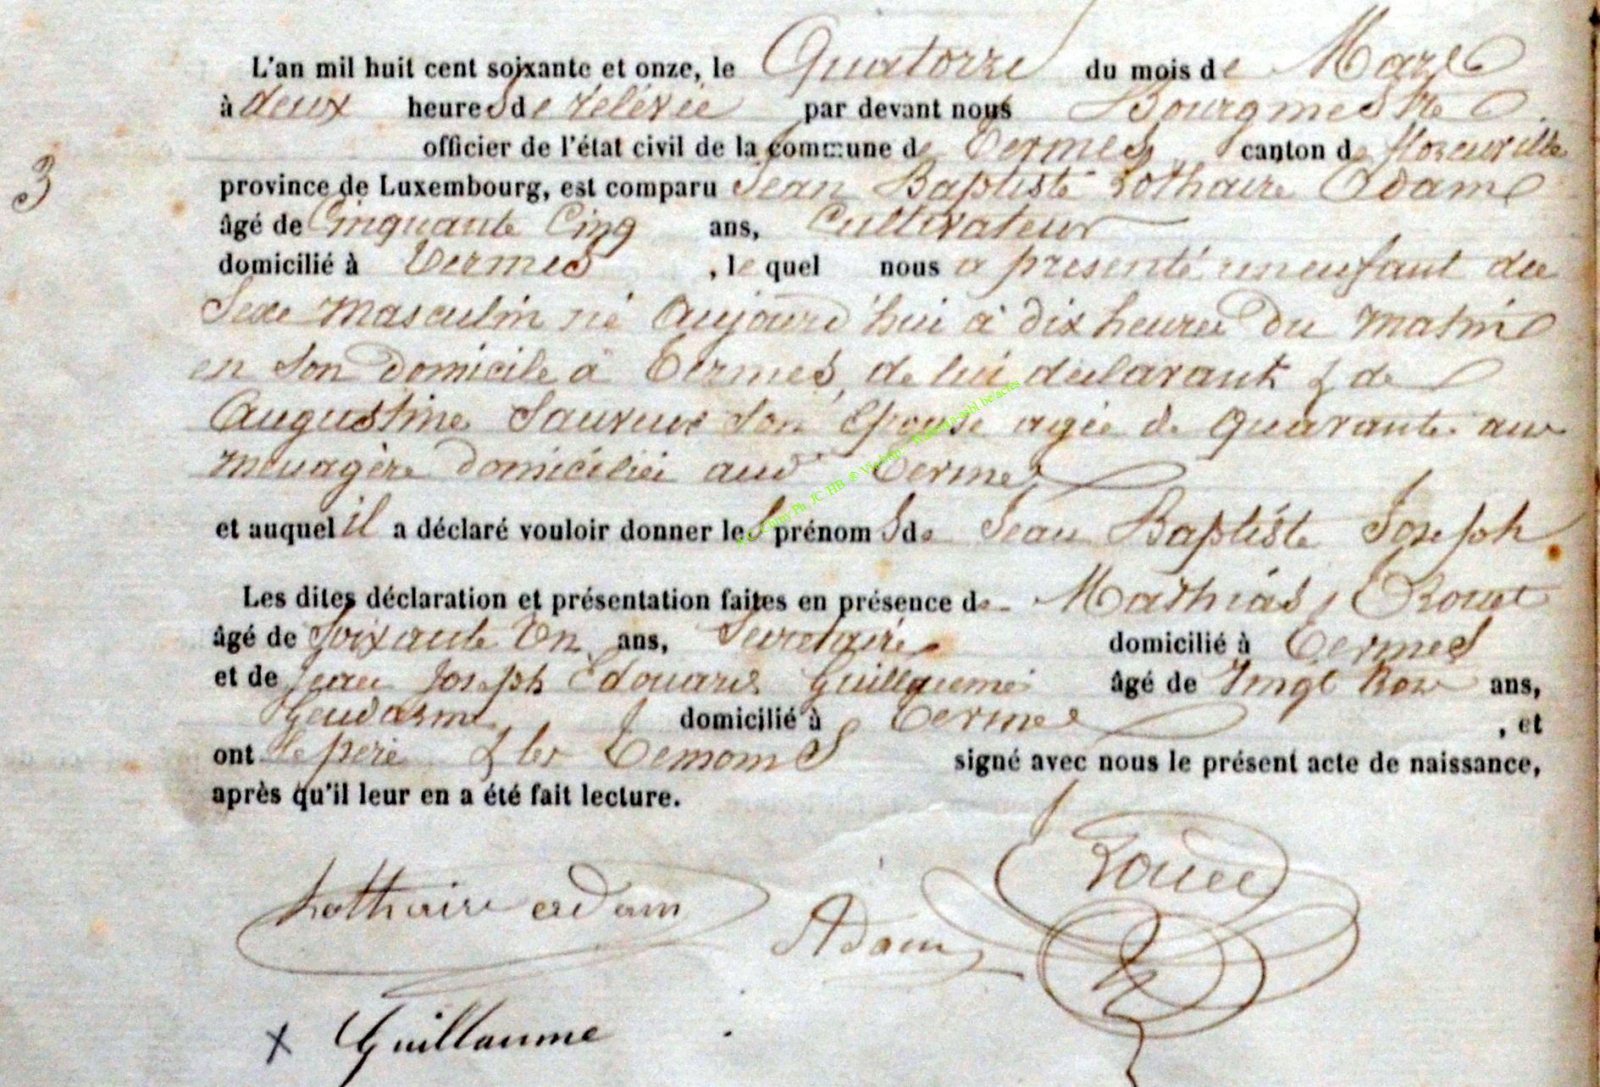 L'an mil huit cent soixante et onze, le Quatorze du mois de Mars
à deux heures de relevée par devant nous Bourgmestre
officier de l'état civil de la commune de Termes canton de Florenville
3
province de Luxembourg, est comparu Jean Baptiste Lothaire Adam
âgé de Cinquante Cinq ans, Cultivateur
domicilié à Termes, le quel nous a présenté un enfant du
Sexe masculin né aujourd'hui à dix heures du matin
en son domicile à Termes, de lui déclarant & de
Augustine son Epouse agée de quarante ans
ménagère domiciliée au Termes
et auquel il a déclaré vouloir donner les prénoms de Jean Baptiste Joseph
Les dites déclaration et présentation faites en présence de Mathias Rouet
âgé de Soixante Un ans, Secrétaire domicilié à Termes
et de Jean Joseph Edouard Guillaume âgé de Vingt ans,
Gendarme domicilié à Termes, et
ont le père & les Témoins signé avec nous le présent acte de naissance,
après qu'il leur en a été fait lecture.
Lothaire adam
Adam
Rouet
x Guillaume